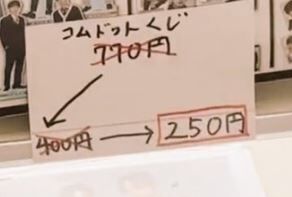 コムドットくじ
770円
400円 → 250円